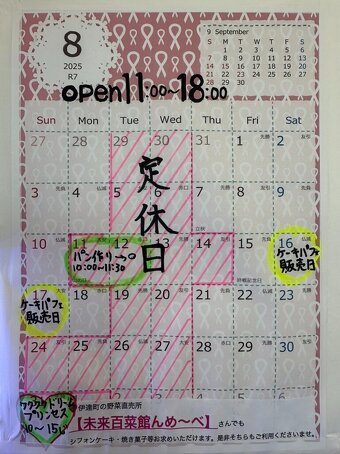 8
2025
R7
9 September
S M T W T F S
1 2 3 4 5 6
7 8 9 10 11 12 13
14 15 16 17 18 19 20
21 22 23 24 25 26 27
28 29 30
open11:00~18:00
Sun Mon Tue Wed Thu Fri Sat
27 28 29 30 31 1 2
3 4 5 6 7 8 9
立秋
定休日
10 11 12 13 14 15 16
パン作り→〇
10:00~11:30
終戦記念日
ケーキパフェ
販売日
17 18 19 20 21 22 23
ケーキパフェ
販売日
24 25 26 27 28 29 30
ワクワクドリーム
プリンセス
10~15
伊達町の野菜直売所
【未来百菜館んめ~べ】さんでも
シフォンケーキ・焼き菓子等お求めいただけます。是非そちらもご利用くださいませ。